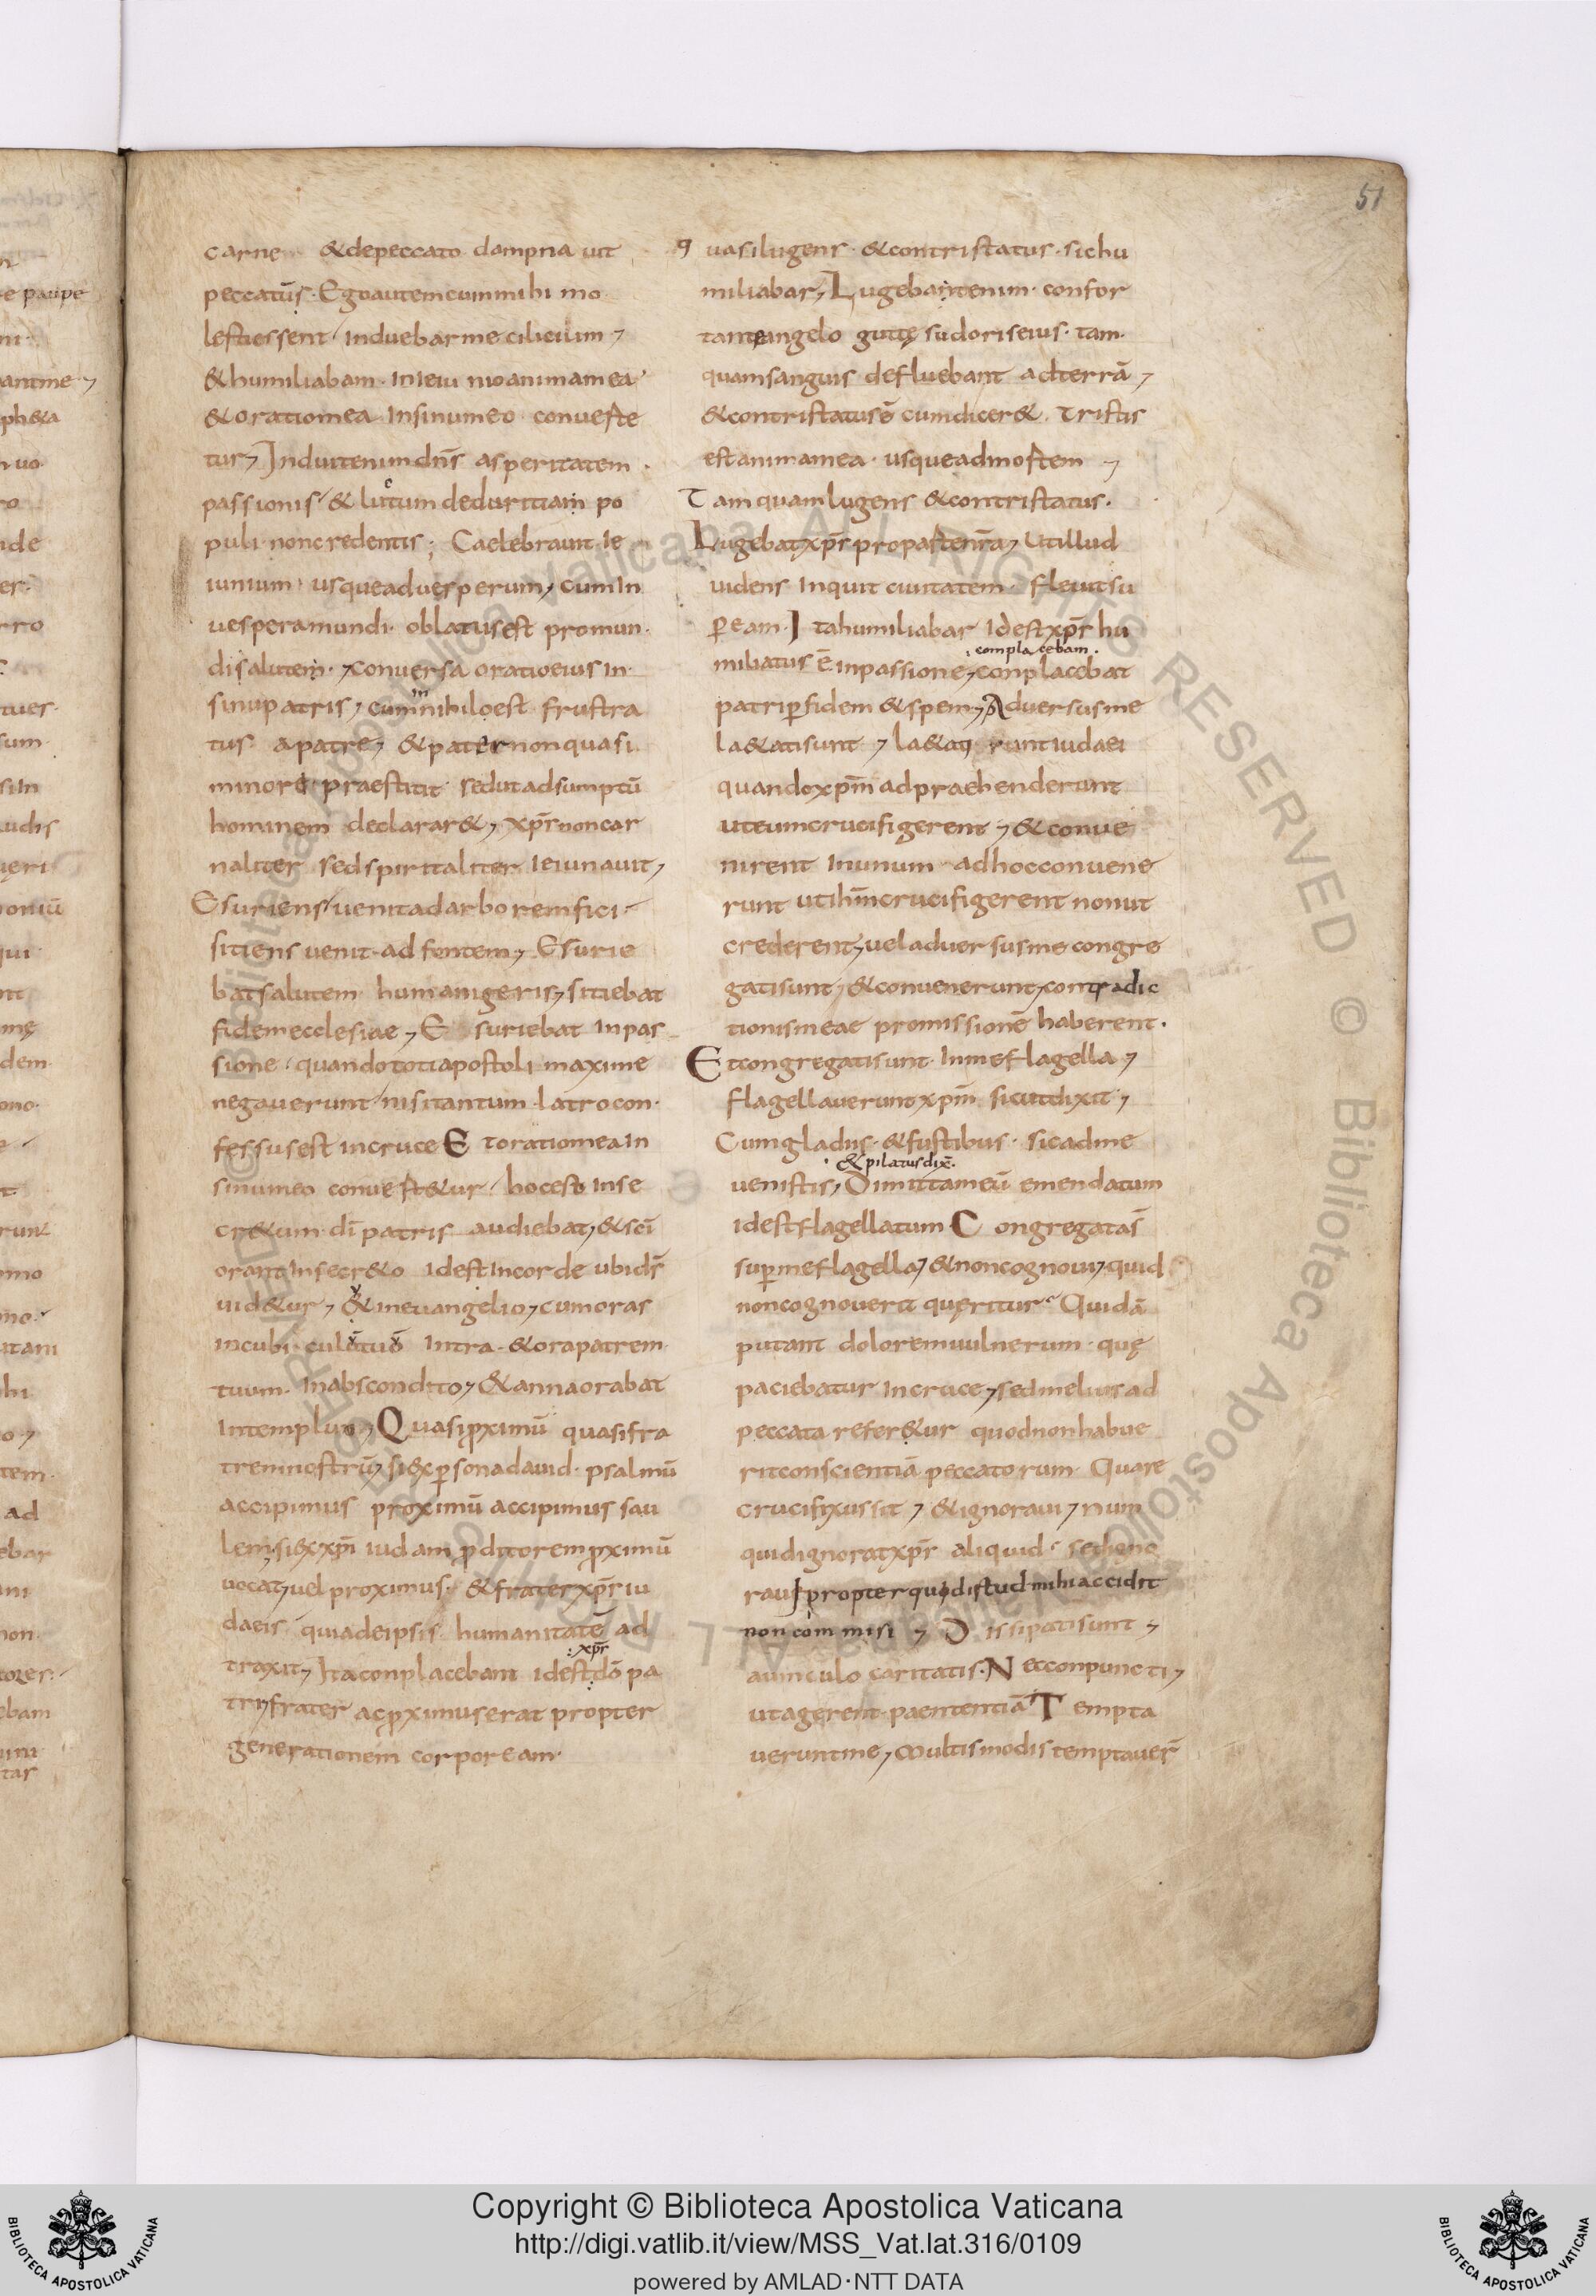 51
carne &depeccato dampna uit
peccatūs· Egoautemcummihi mo
lestiessent induebarmecilicium
&humiliabam· inieiu nioanimamea
&oratiomea insinumeo conuerte
tur Induitenimdn̄s asperitatem
passionis & lutum deduritiam po
puli noncredentis; Caelebrauit ie
iunium usqueaduesperum, cumin
uesperamundi oblatusest promun
disalutem· conuersa oratioeiusin
sinupatris, cum in nihiloest frustra
tus apatre, &paternonquasi
minori praestitit sedutadsumptū
hominem declarar&, xp̄rnoncar
naliter sedspiritaliter ieiunauit,
Esuriens uenitadarboremfici
sitiens uenit ad fontem, Esurie
batsalutem humanigeris, sitiebat
fidemecclesiae, Esuriebat inpas
sione· quandototiapostoli maxime
negauerunt nisitantum latrocon
fessusest incruce Et oratiomeain
sinumeo conuert&ur hocest inse
cr&um dī patris audiebat, &sc̄i
orantinsecr&o idestincorde ubidr̄
uid&ur, &ineuangelio, cumoras
incubiculōtuō intra &orapatrem
tuum· inabscondito, &annaorabat
intemplum, Quasiproximū quasifra
tremnostrū, siexpersonadauid psalmū
accipimus proximū accipimus sau
lem, siexxp̄i iudam proditoremproximū
uocat, uel proximus· &fraterxp̄riu
daeis quiadeipsis humanitatē ad
xp̄r
traxit, Itaconplacebam idestdō pa
tri, frater acproximuserat propter
generationem corpoream·
quasilugens &contristatus· sichu
miliabar, Lugebantenim confor
tanteangelo guttę sudoriseius· tam
quamsanguis defluebant adterrā,
&contristatusē cumdicer& Tristis
estanimamea usqueadmortem
Tamquamlugens &contristatus·
Lugebatxp̄rpropasterra, utillud
uidens inquit ciuitatem fleuitsu
peam· Itahumiliabar idestxp̄rhu
complacebam·
miliatus ē inpassione, conplacebat
patriperfidem &spem, Aduersusme
la&atisunt, la&ati suntiudaei
quandoxp̄m adpraehenderunt
uteumcrucifigerent, &conue
nirent inunum adhocconuene
runt utihm̄crucifigerent nonut
crederent, ueladuersusme congre
gatisunt, &conuenerunt, contradic
tionismeae promissionē haberent·
Etcongregatisunt inmeflagella,
flagellaueruntxp̄m sicutdixit,
Cumgladiis· &fustibus· sicadme
&pilatusdix̄·
uenistis, Dimittameū emendatum
idestflagellatum Congregatas̄
supermeflagella, &noncognoui, quid
noncognouerit queritur Quidā
putant doloremuulnerum quę
paciebatur incruce, sedmeliusad
peccata refer&ur quodnonhabue
ritconscientiā peccatorum Quare
crucifixussit, &ignoraui, num
quidignoratxp̄r aliquid· sedigno
raui propterquodistudmihiaccidit
non commisi, Dissipatisunt,
auinculo caritatis· Necconpuncti,
utagerent paenitentiā Tempta
ueruntme, Multismodistemptauer̄
Copyright © Biblioteca Apostolica Vaticana
http://digi.vatlib.it/view/MSS_Vat.lat.316/0109
powered by AMLAD·NTT DATA
BIBLIOTECA APOSTOLICA VATICANA
BIBLIOTECA APOSTOLICA VATICANA